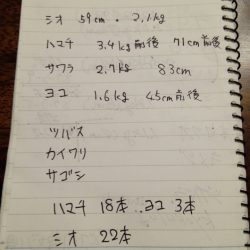 シオ 59cm . 2.1kg
ハマチ 3.4kg前後 71cm前後
サワラ 2.7kg 83cm
ヨコ 1.6kg 45cm前後
ツバス
カイワリ
サゴシ
ハマチ 18本 ..ヨコ 3本
シオ 22本